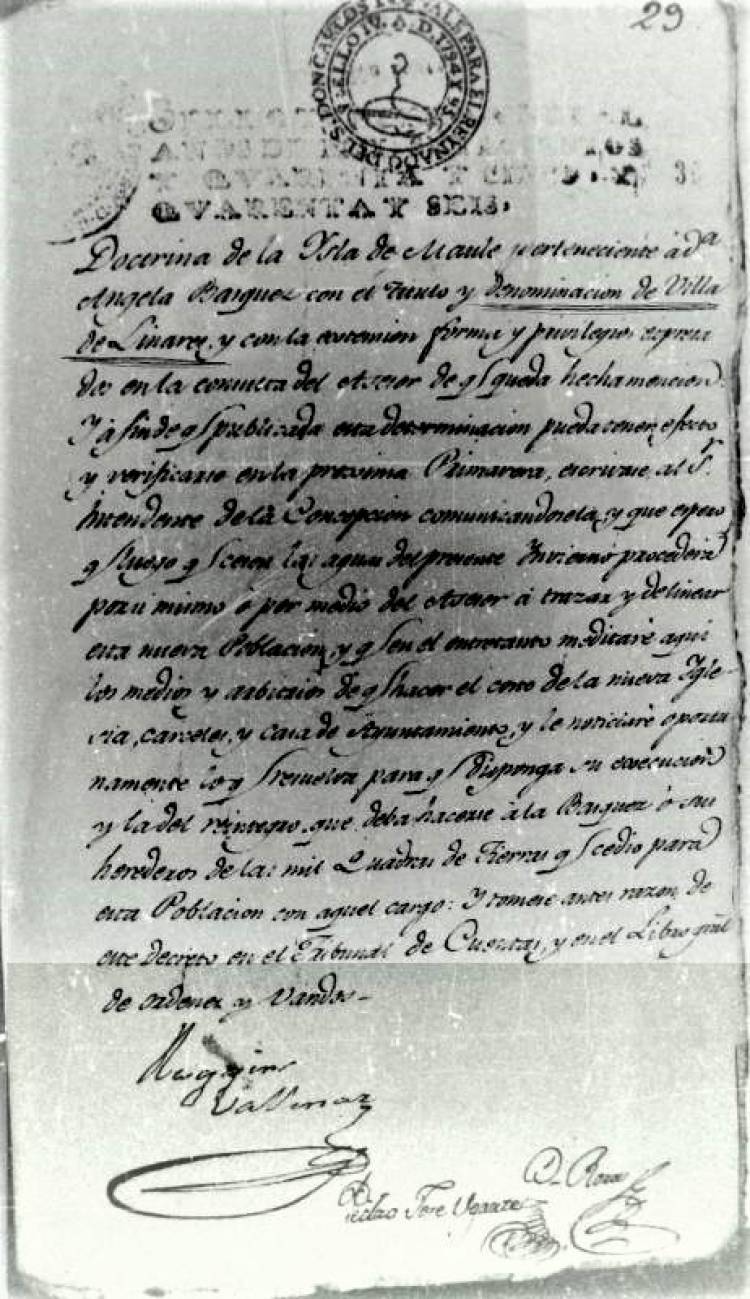 29
A. D. 1794 Y 95
QVARENTA Y SEIS.
Doctrina de la Ysla de Maule perteneciente á dª
Angela Basquez con el titulo y denominacion de Villa
de Linares, y con la extension forma y privilegios expresa
dos en la consulta del Asesor de q̃ queda hecha mencion.
Y á fin de q̃ publicada esta determinacion pueda tener efecto
y verificarse en la proxima Primavera, escrivase al Sr.
Intendente de la Concepcion comunicandosela, y que espero
q̃ luego q̃ cesen las aguas del presente Invierno procederá
por si mismo ó por medio del Asesor á trazar y delinear
esta nueva Poblacion, y q̃ en el entretanto meditaré aqui
los medios y arbitrios de q̃ hacer el costo de la nueva Ygle-
sia, carceles, y casa de Ayuntamiento, y le noticiaré oportu
namente lo q̃ resuelva para q̃ disponga su execucion
y la del reintegro que deba hacerse á la Basquez ó sus
herederos de las mil Quadras de tierras q̃ cedio para
esta Poblacion con aquel cargo: Y tomese antes razon de
este Decreto en el Tribunal de Cuentas, y en el Libro gral
de ordenes y Vandos-
Higgins
Vallenar
Dr. Rosas
Pedro Jose Ugarte